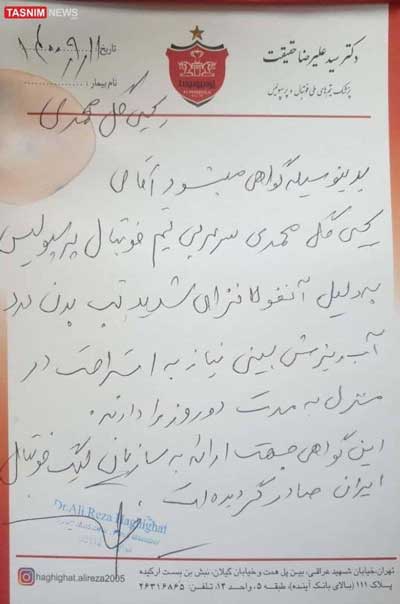 TASNIM NEWS
دکتر سید علیرضا حقیقت
پزشک تیم‌های ملی فوتبال و پرسپولیس
تاریخ: ۱۴۰۰,۹,۱۱
نام بیمار:
یحیی گل محمدی
بدینوسیله گواهی میشود آقای
یحیی گل محمدی سرمربی تیم فوتبال پرسپولیس
به دلیل آنفولانزای شدید تب بدن درد
آب ریزش بینی نیاز به استراحت در
منزل به مدت دو روز را دارند.
این گواهی جهت ارائه به سازمان لیگ فوتبال
ایران صادر گردیده است
Dr.Ali Reza Haghighat
haghighat.alireza2005
تهران، خیابان شهید عراقی، بین پل همت و خیابان گیلان، نبش بن بست ارکیده
پلاک ۱۱۱ (بالای بانک آینده)، طبقه ۵، واحد ۱۳، تلفن: ۲۶۳۱۶۸۶۵